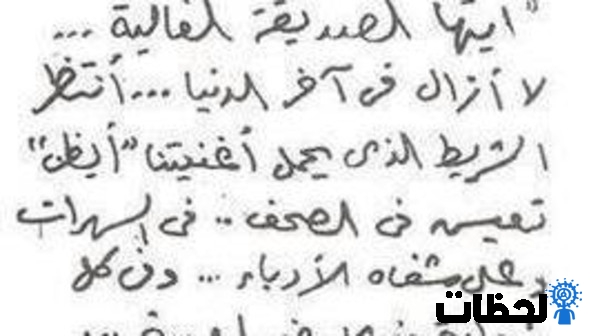 "أيتها الصديقة الغالية ...
لا أزال في آخر الدنيا ... أنتظر
الشريط الذي يحمل أغنيتنا "أيظن"
تعيش في الصحف .. في السهرات
وعلى شفاه الأدباء ... وفي كل
لحظات